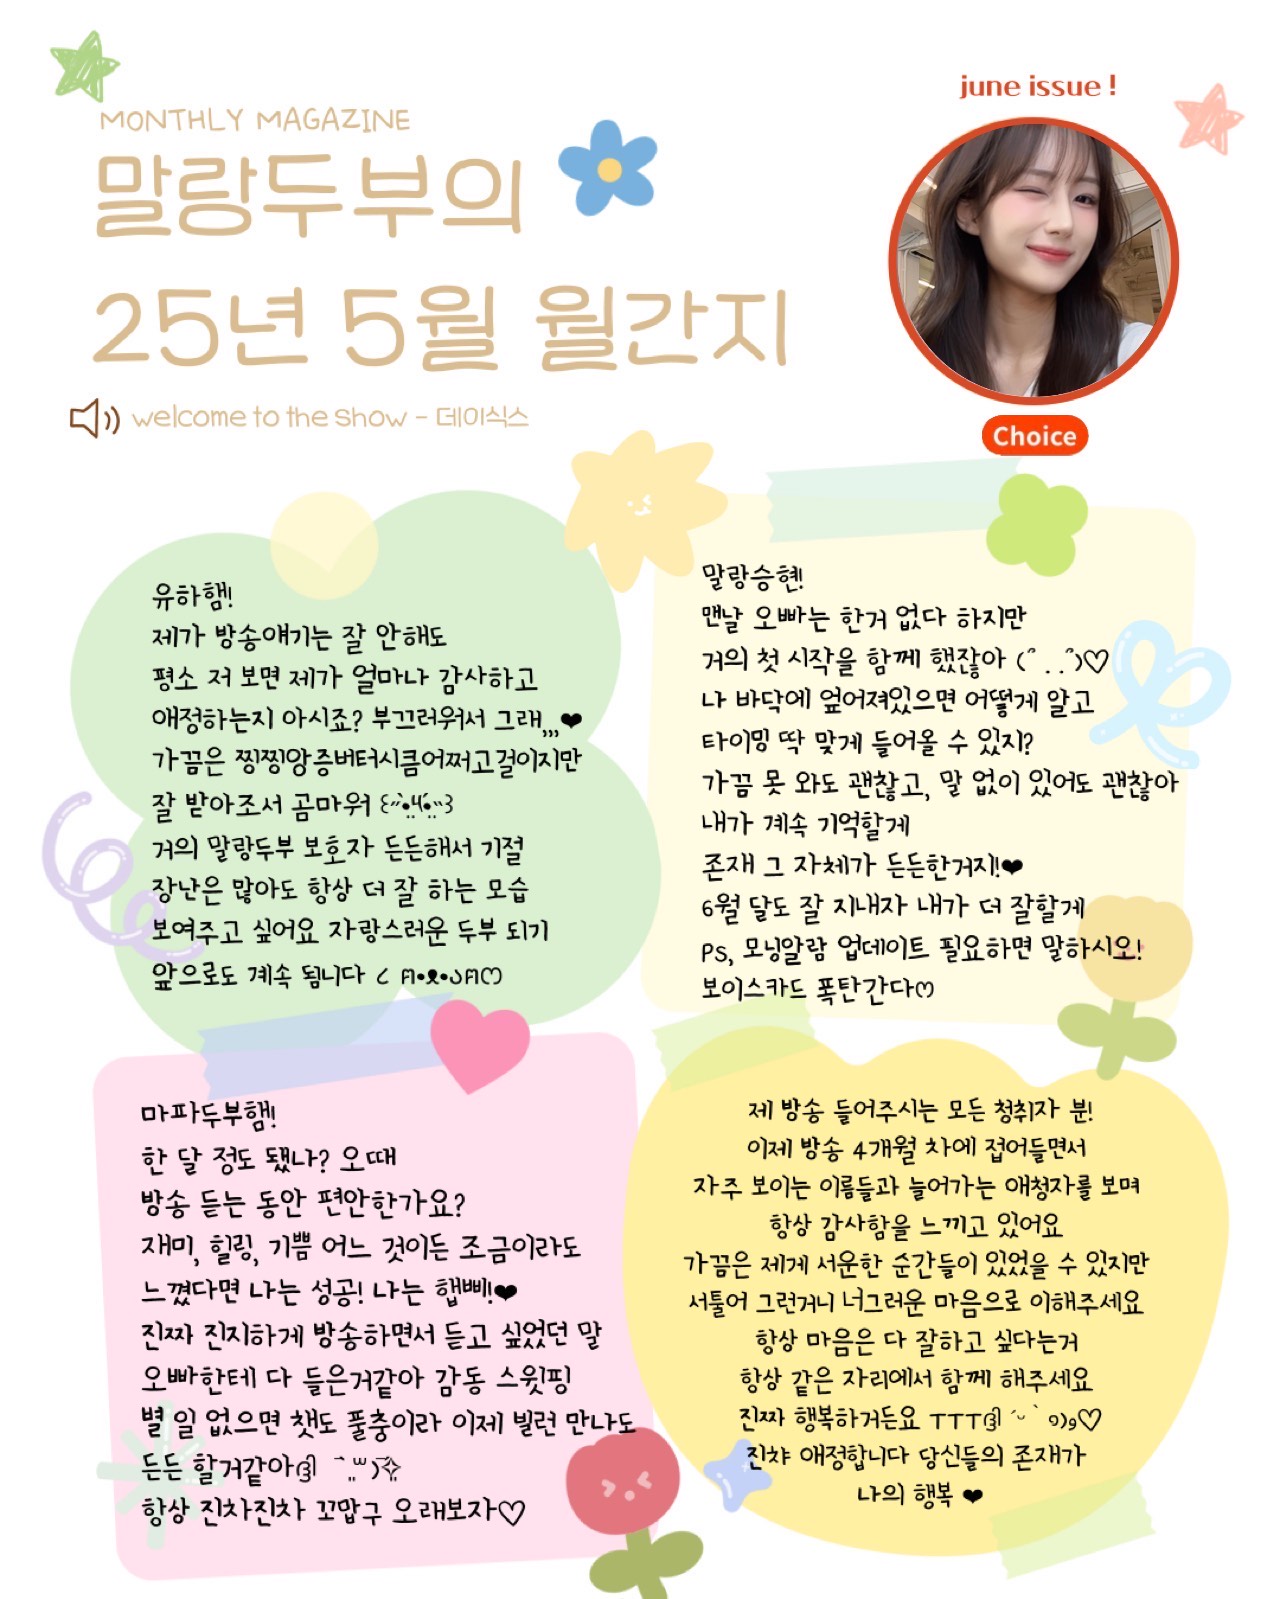 june issue !
MONTHLY MAGAZINE
말랑두부의
25년 5월 월간지
welcome to the show - 데이식스
Choice
유하햄!
제가 방송얘기는 잘 안해도
평소 저 보면 제가 얼마나 감사하고
애정하는지 아시죠? 부끄러워서 그래,,,❤
가끔은 찡찡앙증버터시큼어쩌고걸이지만
잘 받아조서 곰마워
거의 말랑두부 보호자 든든해서 기절
장난은 많아도 항상 더 잘 하는 모습
보여주고 싶어요 자랑스러운 두부 되기
앞으로도 계속 됩니다
말랑승현!
맨날 오빠는 한거 없다 하지만
거의 첫 시작을 함께 했잖아 (˝ . .˝)♡
나 바닥에 엎어져있으면 어떻게 알고
타이밍 딱 맞게 들어올 수 있지?
가끔 못 와도 괜찮고, 말 없이 있어도 괜찮아
내가 계속 기억할게
존재 그 자체가 든든한거지!❤
6월 달도 잘 지내자 내가 더 잘할게
Ps, 모닝알람 업데이트 필요하면 말하시오!
보이스카드 폭탄간다ෆ
마파두부햄!
한 달 정도 됐나? 오때
방송 듣는 동안 편안한가요?
재미, 힐링, 기쁨 어느 것이든 조금이라도
느꼈다면 나는 성공! 나는 햅삐!❤
진짜 진지하게 방송하면서 듣고 싶었던 말
오빠한테 다 들은거같아 감동 스윗핑
별 일 없으면 챗도 풀충이라 이제 빌런 만나도
든든 할거같아
항상 진차진차 꼬맙구 오래보자♡
제 방송 들어주시는 모든 청취자 분!
이제 방송 4개월 차에 접어들면서
자주 보이는 이름들과 늘어가는 애청자를 보며
항상 감사함을 느끼고 있어요
가끔은 제게 서운한 순간들이 있었을 수 있지만
서툴어 그런거니 너그러운 마음으로 이해주세요
항상 마음은 다 잘하고 싶다는거
항상 같은 자리에서 함께 해주세요
진짜 행복하거든요 TTT
진챠 애정합니다 당신들의 존재가
나의 행복 ❤